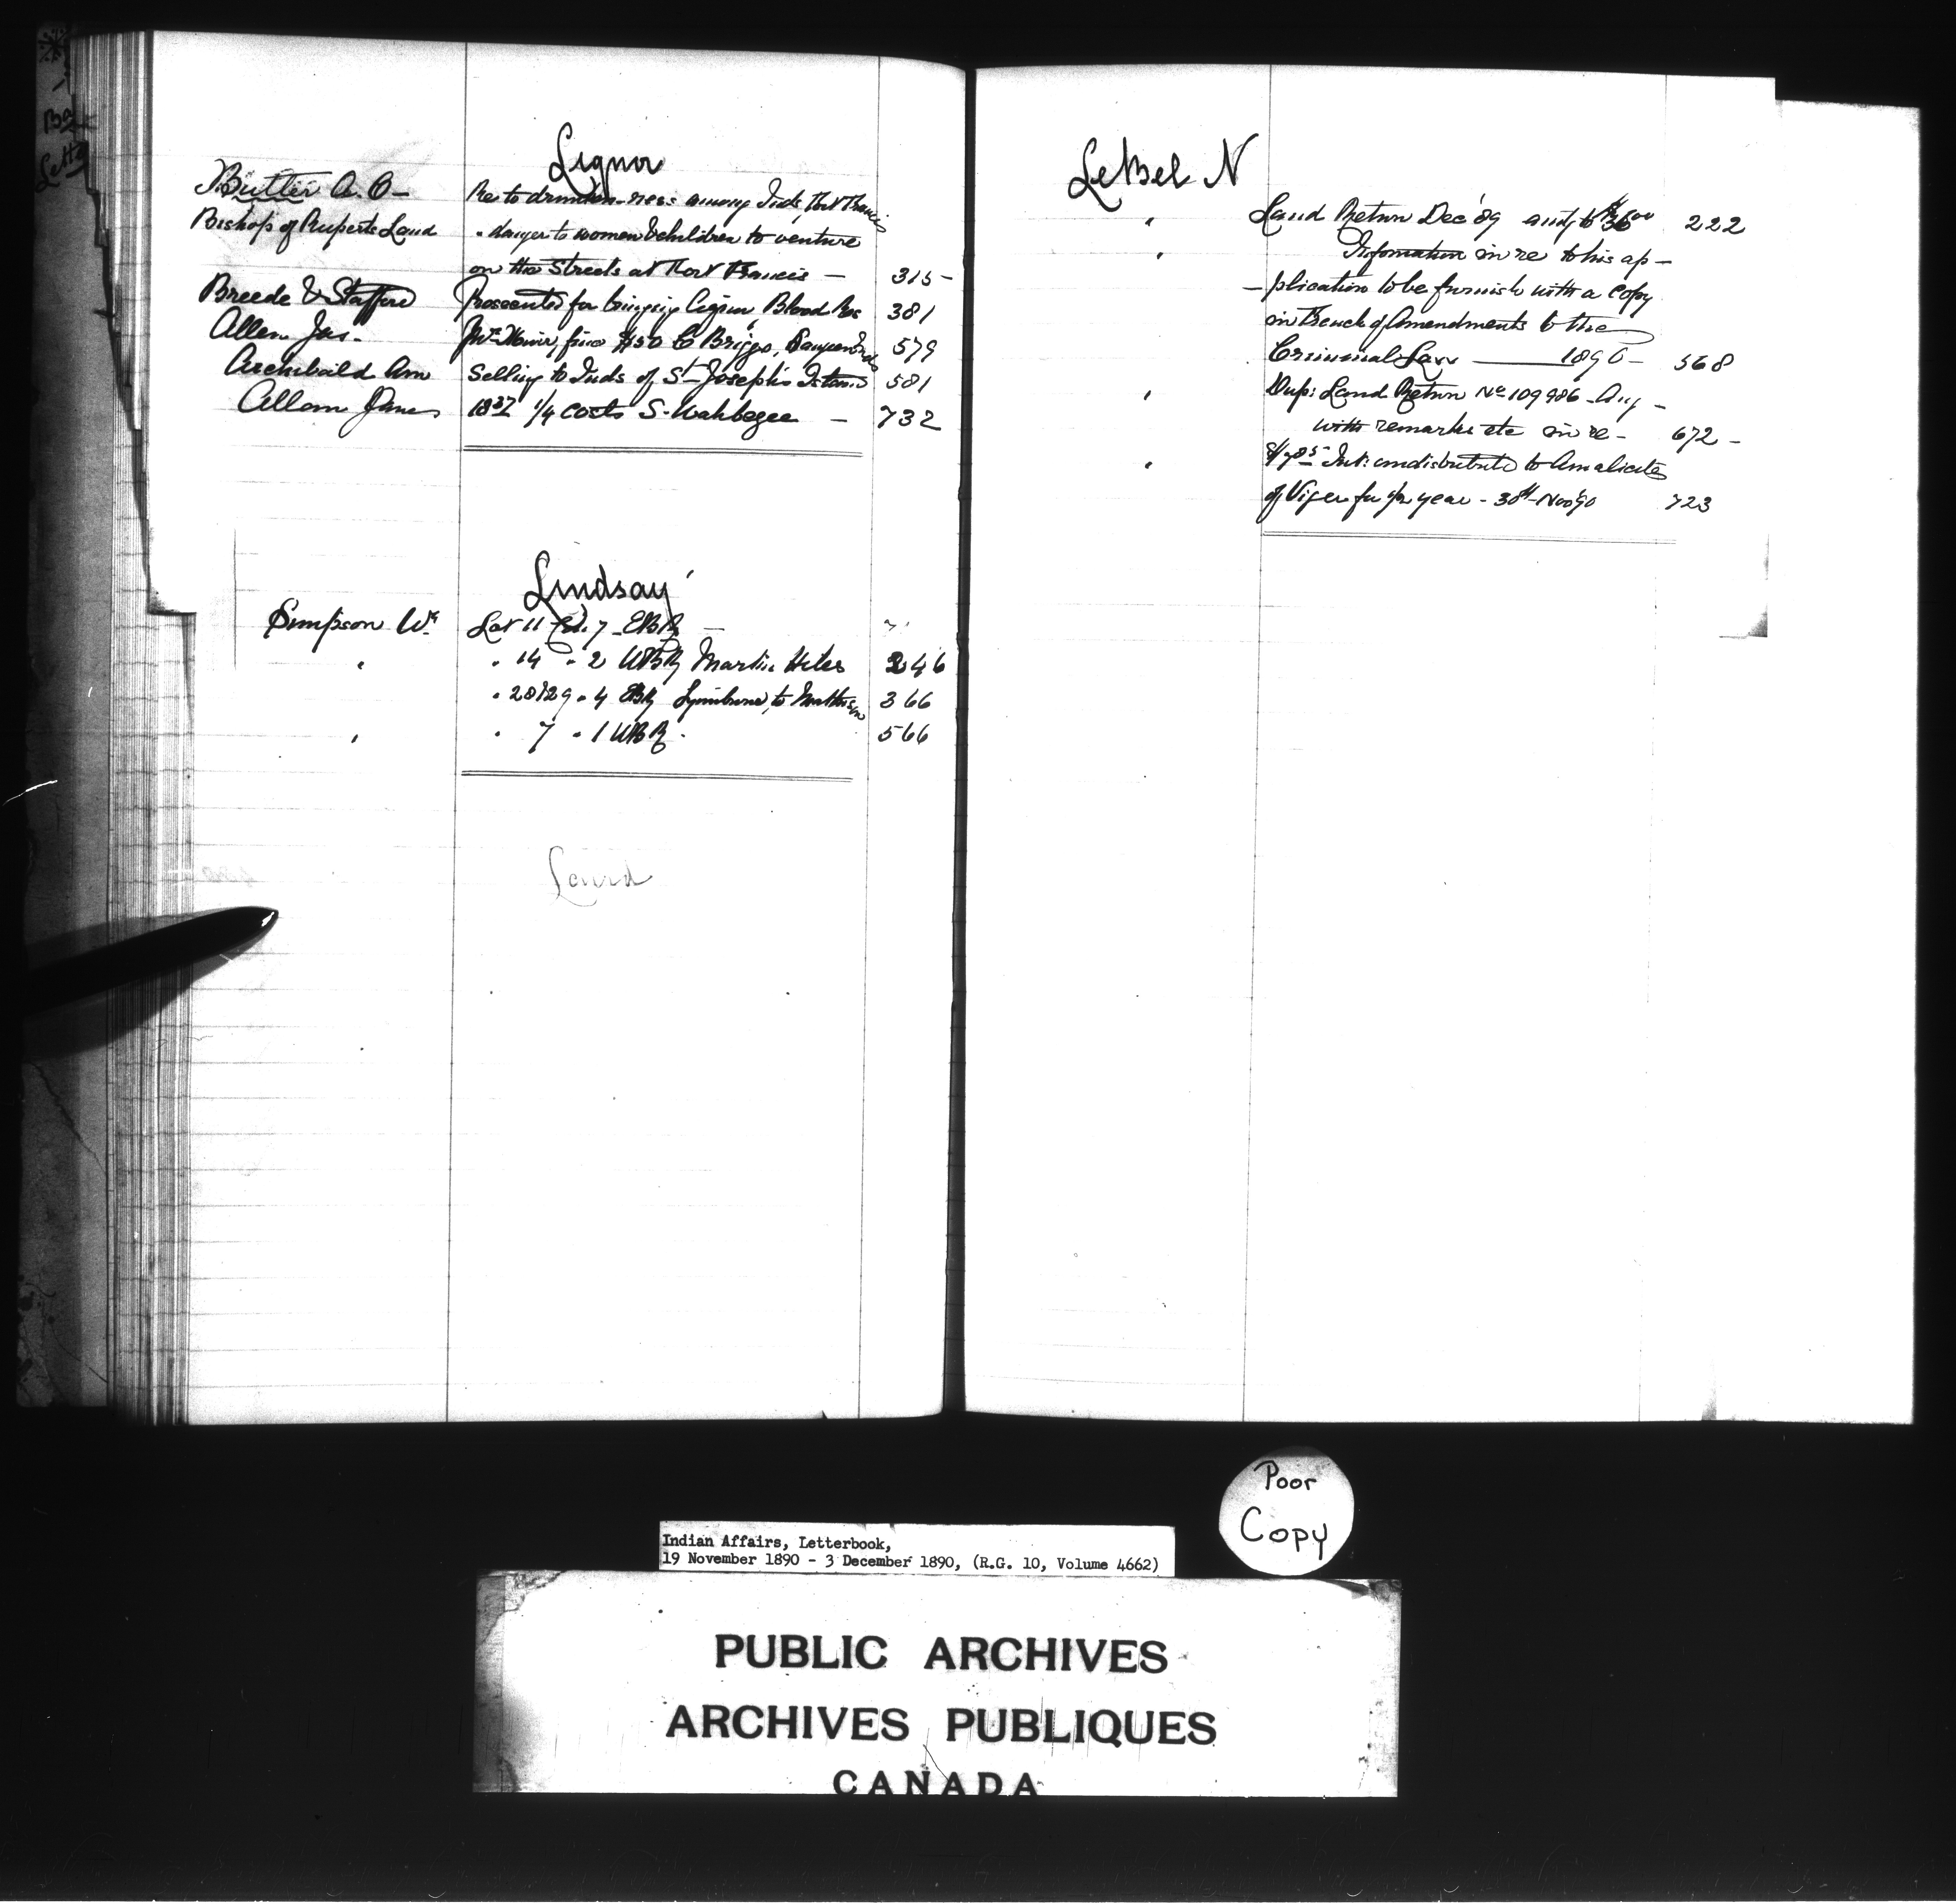 Liquor
Butler A. B - Re to drunken-ness among Inds, Fort Francis
Bishop of Ruperts Land " danger to women & children to venture
on the Streets at Fort Francis — 315 -
Breede & Stafford Prosecuted for bringing liquor Blood Res 381
Allen Jas. fine $50 C Briggs, 579
Archibald Am Selling to Inds of St Josephs Island 581
Allen James 18.37 1/4 costs S. Wahbegee — 732
Lindsay
Simpson Wm Lot 11 7 EBR —
" " 14 " 2 WBR Martin Hiles 246
" 28 & 29 " 4 EBR Lymburner to Mathison 366
" " 7 " 1 WBR. 566
Laird
LeBel N
" Land Return Dec '89 amtg to $36.00 222
" Information in re to his ap-
-plication to be furnish with a copy
in French of Amendments to the
Criminal Law — 1890 — 568
" Dup: Land Return No 109986 - Aug -
with remarks etc in re - 672 -
" Int: undistributed to Amalicites
of Viger for 1/2 year - 30th Nov '90 723
Poor
Copy
Indian Affairs, Letterbook,
19 November 1890 - 3 December 1890, (R.G. 10, Volume 4662)
PUBLIC ARCHIVES
ARCHIVES PUBLIQUES
CANADA